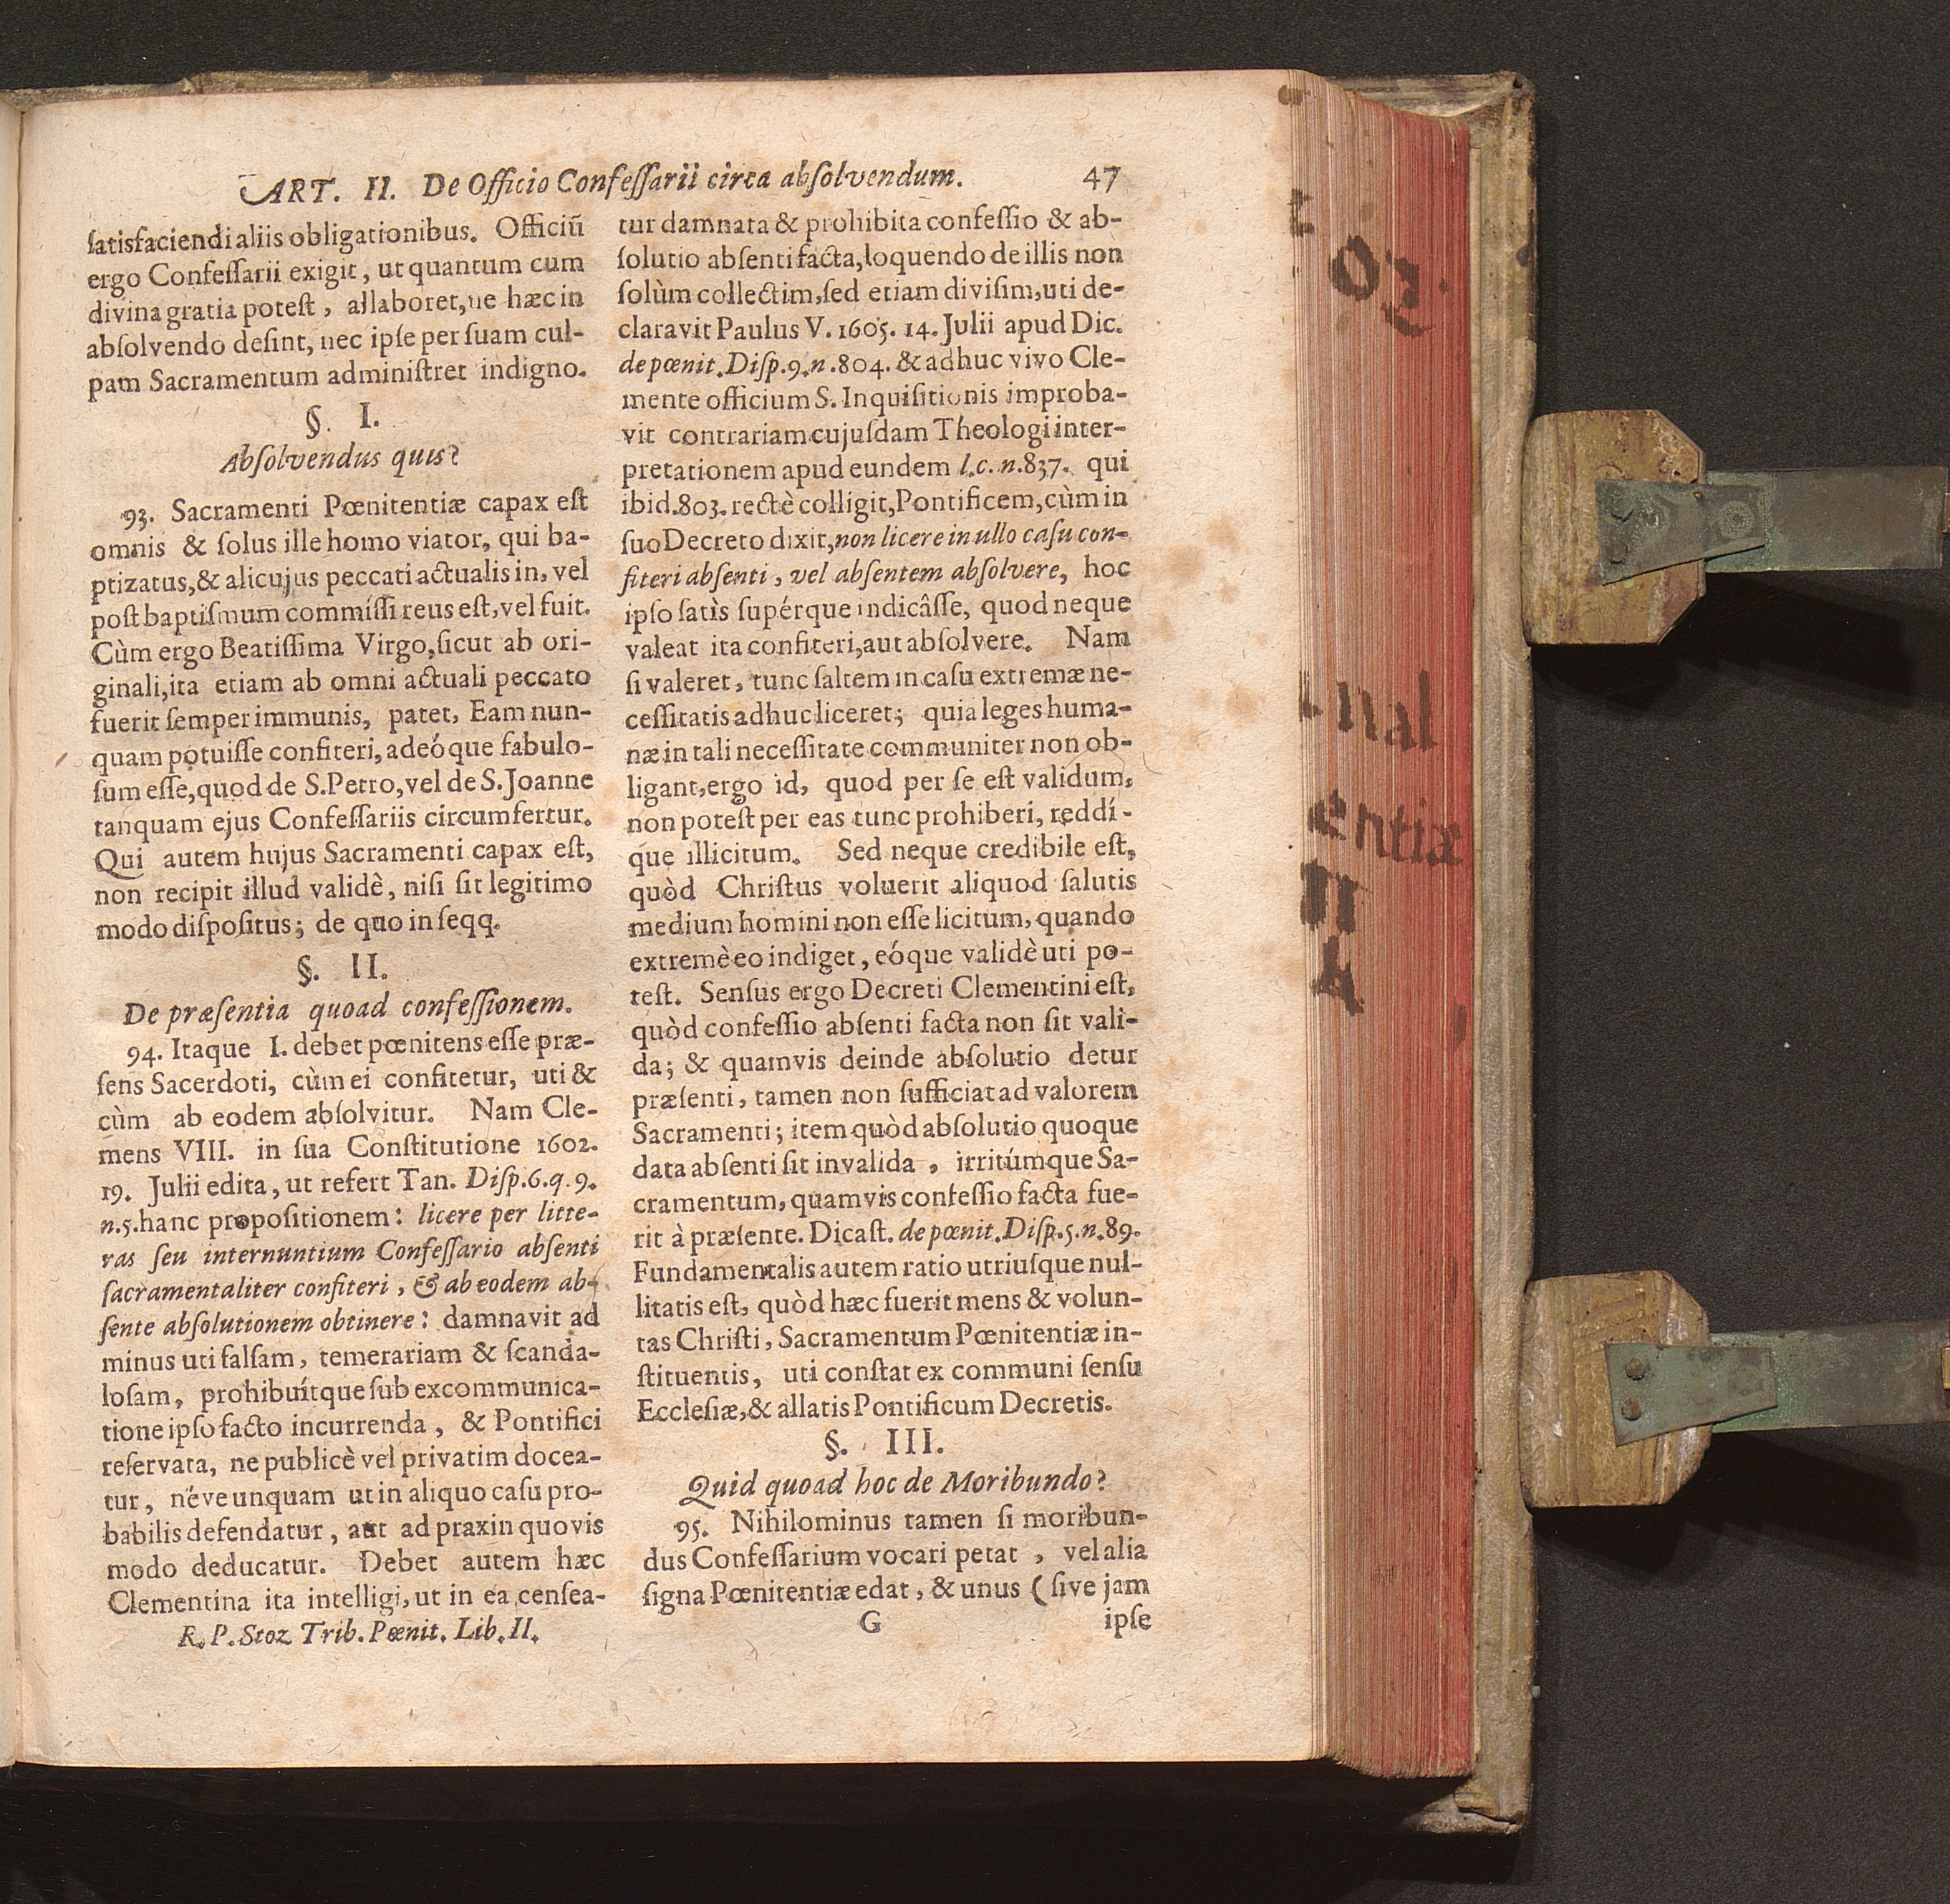 ART. II. De Officio Confeſſarii circa abſolvendum. 47
ſatisfaciendi aliis obligationibus. Officiū
ergo Confeſſarii exigit, ut quantum cum
divina gratia poteſt, allaboret, ne hæc in
abſolvendo deſint, nec ipſe per ſuam cul-
pam Sacramentum adminiſtret indigno.
§. I.
Abſolvendus quis?
93. Sacramenti Pœnitentiæ capax eſt
omnis & ſolus ille homo viator, qui ba-
ptizatus, & alicujus peccati actualis in, vel
poſt baptiſmum commiſſi reus eſt, vel fuit.
Cùm ergo Beatiſſima Virgo, ſicut ab ori-
ginali, ita etiam ab omni actuali peccato
fuerit ſemper immunis, patet, Eam nun-
quam potuiſſe confiteri, adeóque fabulo-
ſum eſſe, quod de S. Petro, vel de S. Joanne
tanquam ejus Confeſſariis circumfertur.
Qui autem hujus Sacramenti capax eſt,
non recipit illud validè, niſi ſit legitimo
modo diſpoſitus; de quo in ſeqq.
§. II.
De præſentia quoad confeſſionem.
94. Itaque I. debet pœnitens eſſe præ-
ſens Sacerdoti, cùm ei confitetur, uti &
cùm ab eodem abſolvitur. Nam Cle-
mens VIII. in ſua Conſtitutione 1602.
19. Julii edita, ut refert Tan. Diſp. 6. q. 9.
n. 5. hanc propoſitionem: licere per litte-
ras ſeu internuntium Confeſſario abſenti
ſacramentaliter confiteri, & ab eodem ab-
ſente abſolutionem obtinere: damnavit ad
minus uti falſam, temerariam & ſcanda-
loſam, prohibuítque ſub excommunica-
tione ipſo facto incurrenda, & Pontifici
reſervata, ne publicè vel privatim docea-
tur, néve unquam ut in aliquo caſu pro-
babilis defendatur, aut ad praxin quovis
modo deducatur. Debet autem hæc
Clementina ita intelligi, ut in ea cenſea-
R. P. Stoz Trib. Pœnit. Lib. II.
tur damnata & prohibita confeſſio & ab-
ſolutio abſenti facta, loquendo de illis non
ſolùm collectim, ſed etiam diviſim, uti de-
claravit Paulus V. 1605. 14. Julii apud Dic.
de pœnit. Diſp. 9. n. 804. & adhuc vivo Cle-
mente officium S. Inquiſitionis improba-
vit contrariam cujuſdam Theologi inter-
pretationem apud eundem l. c. n. 837. qui
ibid. 803. rectè colligit, Pontificem, cùm in
ſuo Decreto dixit, non licere in ullo caſu con-
fiteri abſenti, vel abſentem abſolvere, hoc
ipſo ſatìs ſupérque indicâſſe, quod neque
valeat ita confiteri, aut abſolvere. Nam
ſi valeret, tunc ſaltem in caſu extremæ ne-
ceſſitatis adhuc liceret; quia leges huma-
næ in tali neceſſitate communiter non ob-
ligant, ergo id, quod per ſe eſt validum,
non poteſt per eas tunc prohiberi, reddí-
que illicitum. Sed neque credibile eſt,
quòd Chriſtus voluerit aliquod ſalutis
medium homini non eſſe licitum, quando
extremè eo indiget, eóque validè uti po-
teſt. Senſus ergo Decreti Clementini eſt,
quòd confeſſio abſenti facta non ſit vali-
da; & quamvis deinde abſolutio detur
præſenti, tamen non ſufficiat ad valorem
Sacramenti; item quòd abſolutio quoque
data abſenti ſit invalida, irritúmque Sa-
cramentum, quamvis confeſſio facta fue-
rit à præſente. Dicaſt. de pœnit. Diſp. 5. n. 89.
Fundamentalis autem ratio utriuſque nul-
litatis eſt, quòd hæc fuerit mens & volun-
tas Chriſti, Sacramentum Pœnitentiæ in-
ſtituentis, uti conſtat ex communi ſenſu
Eccleſiæ, & allatis Pontificum Decretis.
§. III.
Quid quoad hoc de Moribundo?
95. Nihilominus tamen ſi moribun-
dus Confeſſarium vocari petat, vel alia
ſigna Pœnitentiæ edat, & unus (ſive jam
G ipſe
oz.
nal
entiæ
II